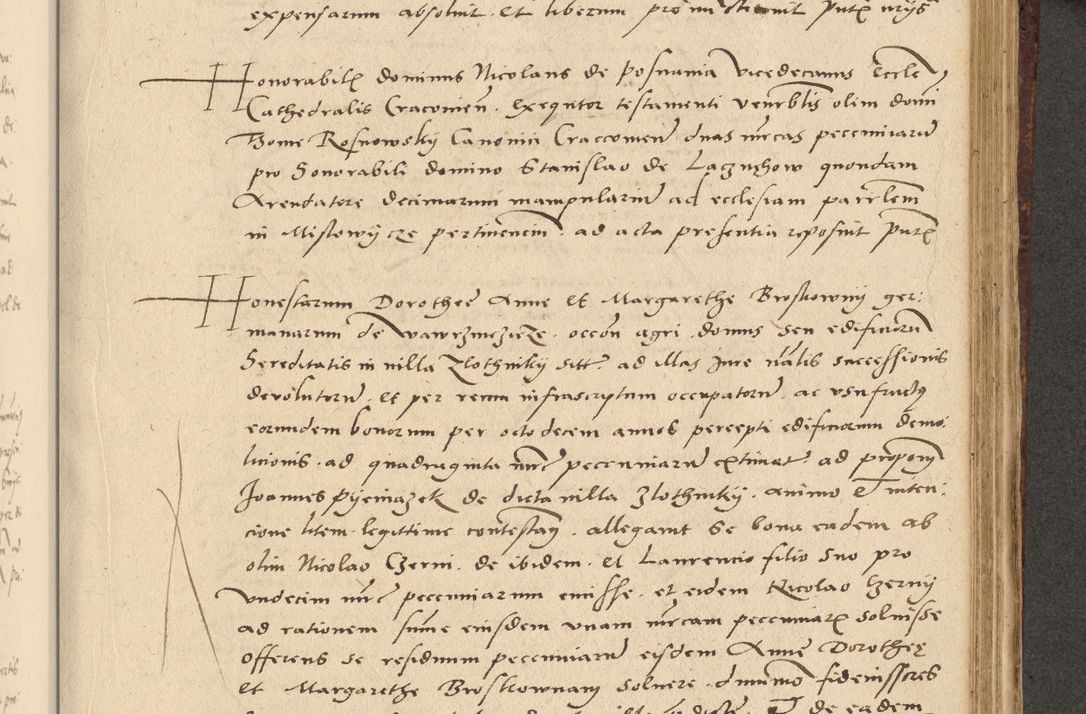 expensarum absoluit et liberum pronunctiauit putx
Honorabilx dominus Nicolaus de Posnania vicedecanus Eccle
Cathedralis Cracouien. Exequtor testamenti venrblis olim domi
Thome Rosnowskÿ Canonici Craccouien duas mrcas pecuniaru
pro Honorabili domino Stanislao de quondam
Arendatore decimarum manipularium ad ecclesiam parrlem
in Mislowÿcze pertinencium ad acta presentia reposuit putx
Honestarum Dorothee Anne Et Margarethe Broskownÿ ger:
manarum de occon agri domus seu edificioru
Hereditatis in villa Zlothnikÿ sitt ad illas Jure nalis successionis
devolutoru. et per reum infrascriptum occupatoru. ac vsufructus
eorundem bonorum per octodecem annos percepti edificiorum demo
licionis. ad quadraginta mrc pecuniaru extimat ad proponem
Joannes Pÿeniazek de dicta villa Zlothnikÿ. animo Et inten:
cione litem legittime contestan. allegauit se bona eadem ab
olim Nicolao Czerni. de ibidem. et Laurencio filio suo pro
vndecim mrc pecuniarum emisse. et eidem Nicolao Czernÿ
ad rationem sume eiusdem vnam mrcam pecuniarx soluisse
offerens se residuum pecuniaru eisdem Anne Dorothee
Et Margarethe Broskownam soluere. dummo fideiussores
de eadem